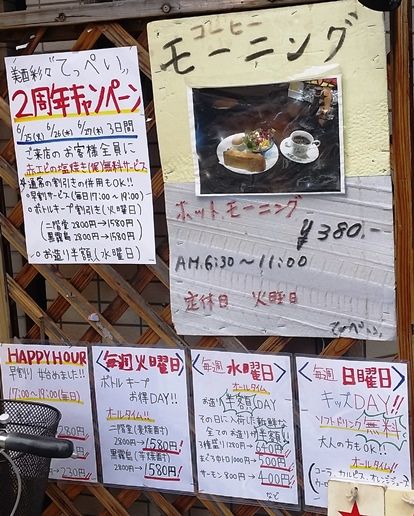 美酒彩々"てっぺい"
2周年キャンペーン
6/25(火) 6/26(水) 6/27(木) 3日間
ご来店のお客様全員に
ホエビの塩焼き(1尾)無料サービス
通常の割引きの併用もOK!!
○早割サービス(毎日17:00~19:00)
○ボトルキープ割引き(火曜日)
(二階堂 2800円→1580円)
(黒霧島 2800円→1580円)
○お造り半額(水曜日)
コーヒー
モーニング
ホットモーニング
¥380.-
AM.6:30~11:00
定休日 火曜日
てっぺい
HAPPY HOUR
早割り 始めました!!
17:00~19:00(毎日)
280円
230円
<毎週 火曜日>
ボトルキープ
お得DAY!!
オールタイム!!
二階堂(麦焼酎)
2800円→1580円!
黒霧島(芋焼酎)
2800円→1580円!
<毎週 水曜日>
オールタイム
お造り半額DAY
その日に入荷した新鮮な
全てのお造りが半額!!
3種盛り 1280円→640円!
まぐろ中トロ1000円→500円!
サーモン 800円→400円!
など
<毎週 日曜日>
キッズDAY!!
ソフトドリンク無料
大人の方もOK!!
オールタイム!!
(コーラ、カルピス、オレンジジュース